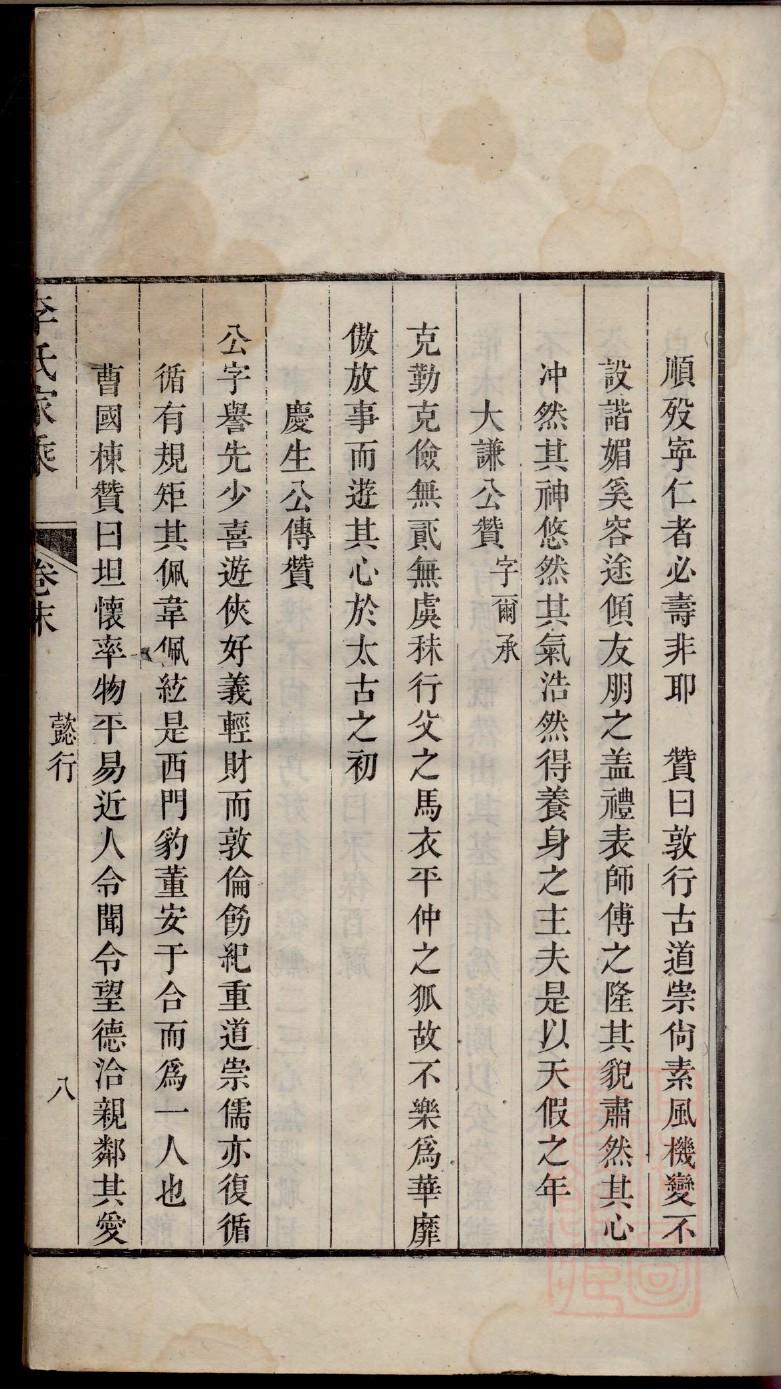 順歿寜仁者必壽非耶　贊曰敦行古道崇尙素風機變不
設諧媚奚容途傾友朋之盖禮表師傅之隆其貌肅然其心
冲然其神悠然其氣浩然得養身之主夫是以天假之年
大謙公贊 字爾承
克勤克儉無貳無虞秣行父之馬衣平仲之狐故不樂爲華靡
傲放事而遊其心於太古之初
慶生公傳贊
公字譽先少喜遊俠好義輕財而敦倫飭紀重道崇儒亦復循
循有規矩其佩韋佩絃是西門豹董安于合而爲一人也
曹國棟贊曰坦懷率物平易近人令聞令望德洽親鄰其愛
李氏家乘　卷末　懿行　八